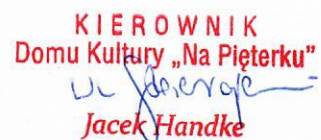 KIEROWNIK
Domu Kultury „Na Pięterku”
Jacek Handke